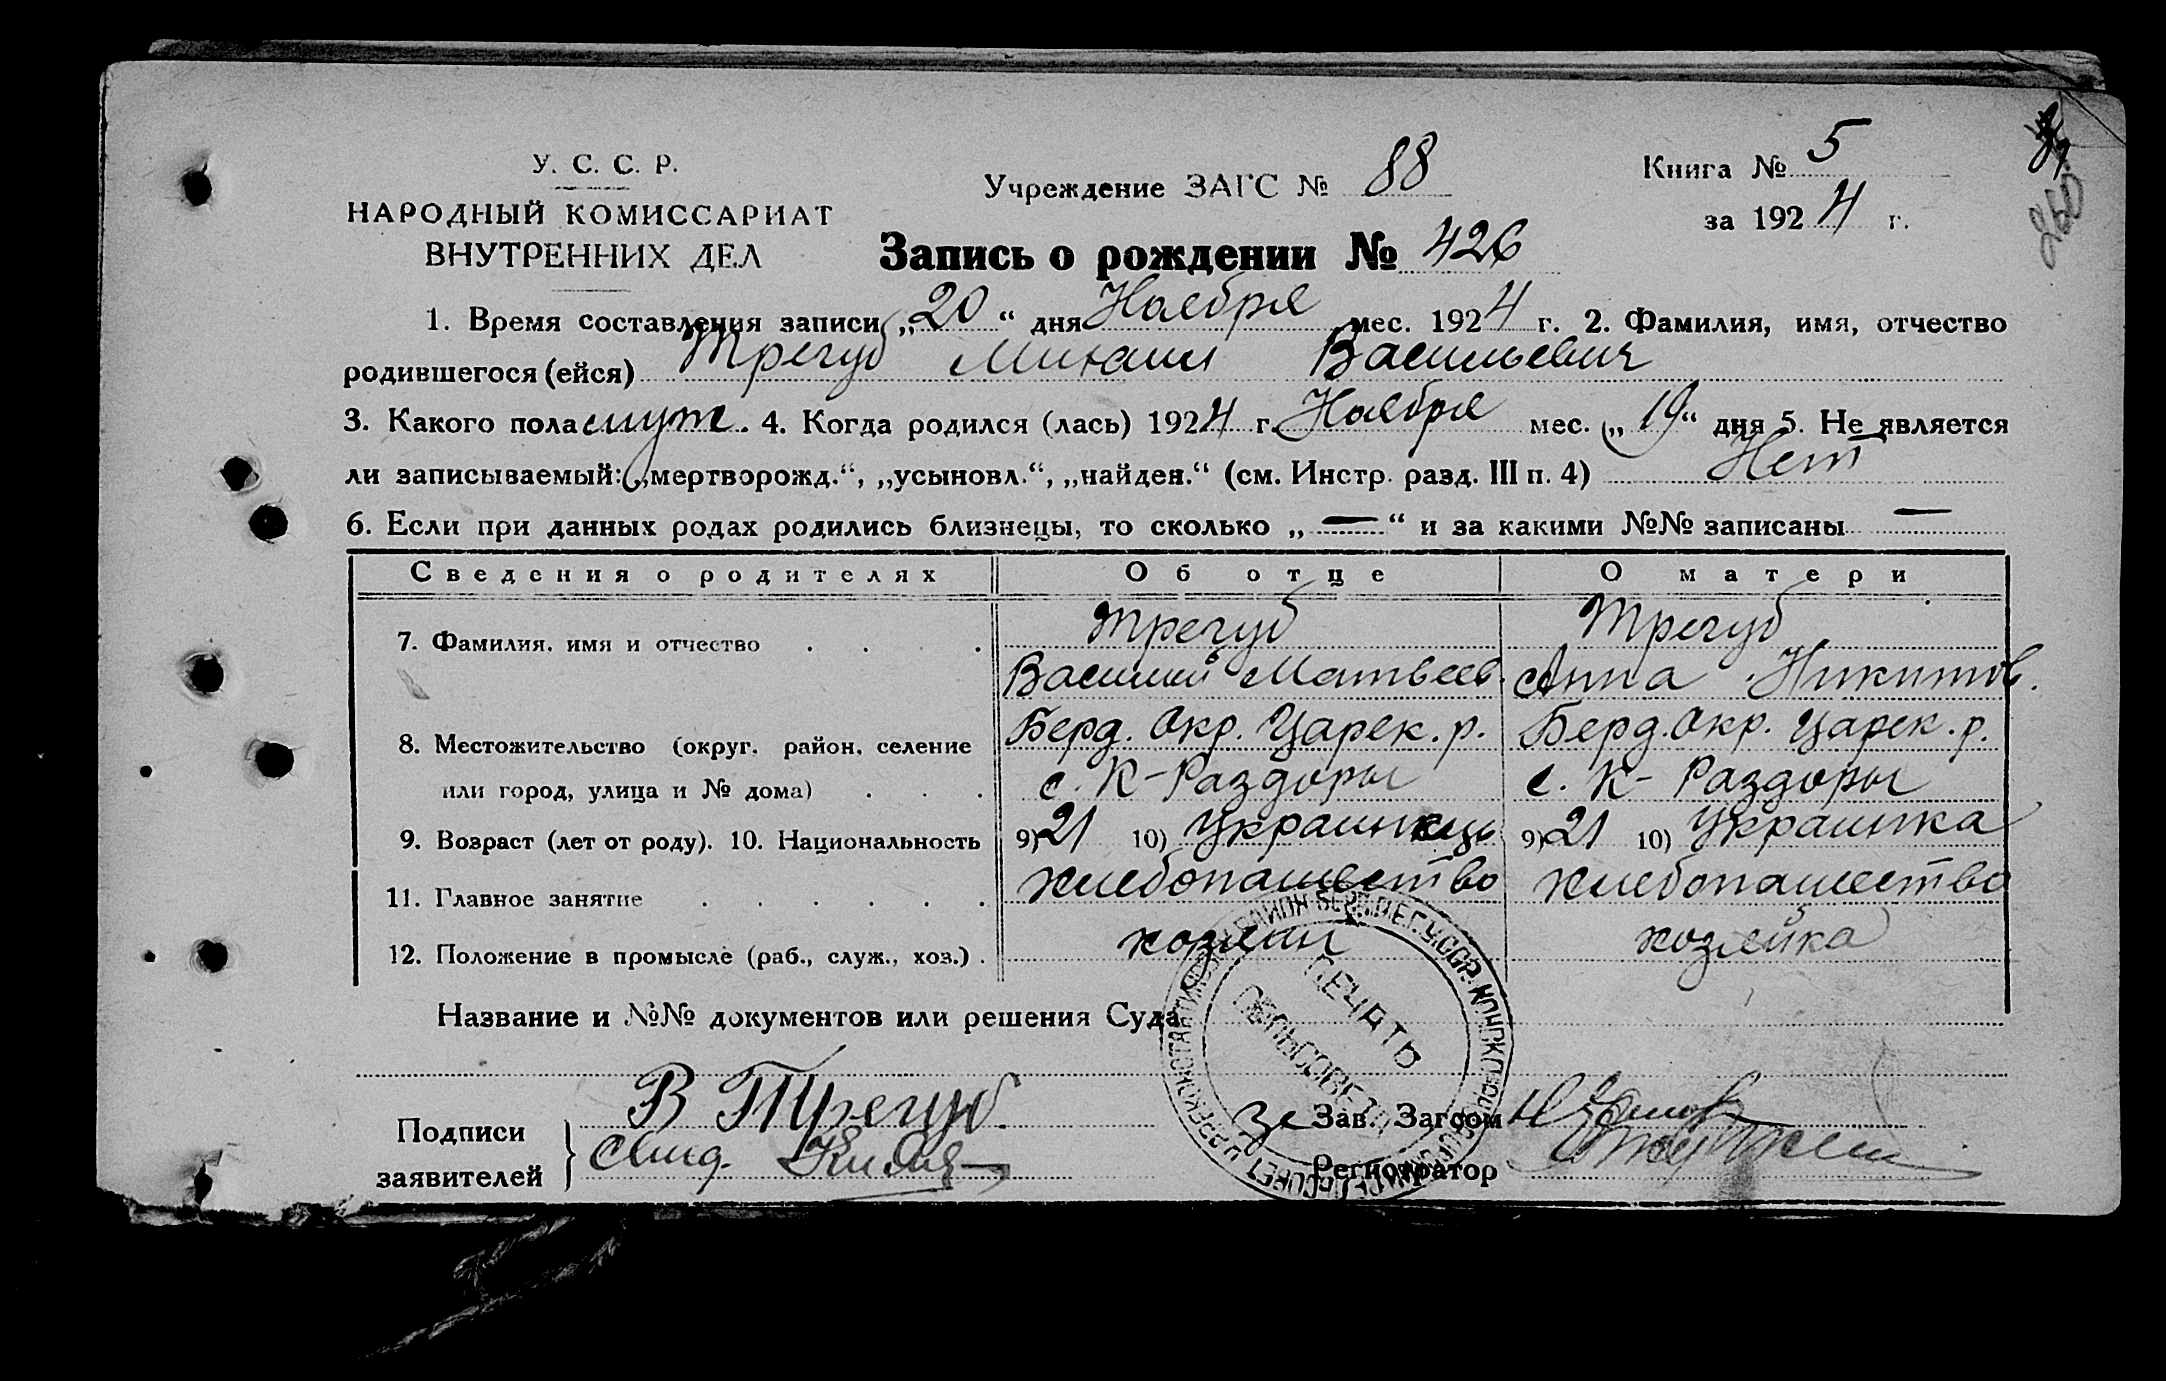 У. С. С. Р.
НАРОДНЫЙ КОМИССАРИАТ
ВНУТРЕННИХ ДЕЛ
Учреждение ЗАГС № 88
Книга № 5
за 1924 г.
Запись о рождении № 426
1. Время составления записи „20“ дня Ноября мес. 1924 г. 2. Фамилия, имя, отчество
родившегося (ейся) Трегуб Михаил Васильевич
3. Какого пола муж. 4. Когда родился (лась) 1924 г. Ноября мес. „19“ дня 5. Не является
ли записываемый: „мертворожд.“, „усыновл.“, „найден.“ (см. Инстр. разд. III п. 4) Нет
6. Если при данных родах родились близнецы, то сколько „—“ и за какими №№ записаны —
Сведения о родителях Об отце О матери
7. Фамилия, имя и отчество Трегуб Трегуб
Василий Матвеев. Анна Никитов.
8. Местожительство (округ, район, селение Берд. Окр. Царек. р. Берд. Окр. Царек. р.
или город, улица и № дома) с. К-Раздоры с. К-Раздоры
9. Возраст (лет от роду). 10. Национальность 9) 21 10) Украинець 9) 21 10) Украинка
11. Главное занятие хлебопашество хлебопашество
12. Положение в промысле (раб., служ., хоз.) хозяин хозяйка
Название и №№ документов или решения Суда
Подписи
заявителей
В Трегуб
За Зав. Загсом
Регистратор
ПЕЧАТЬ
СЕЛЬСОВЕТА